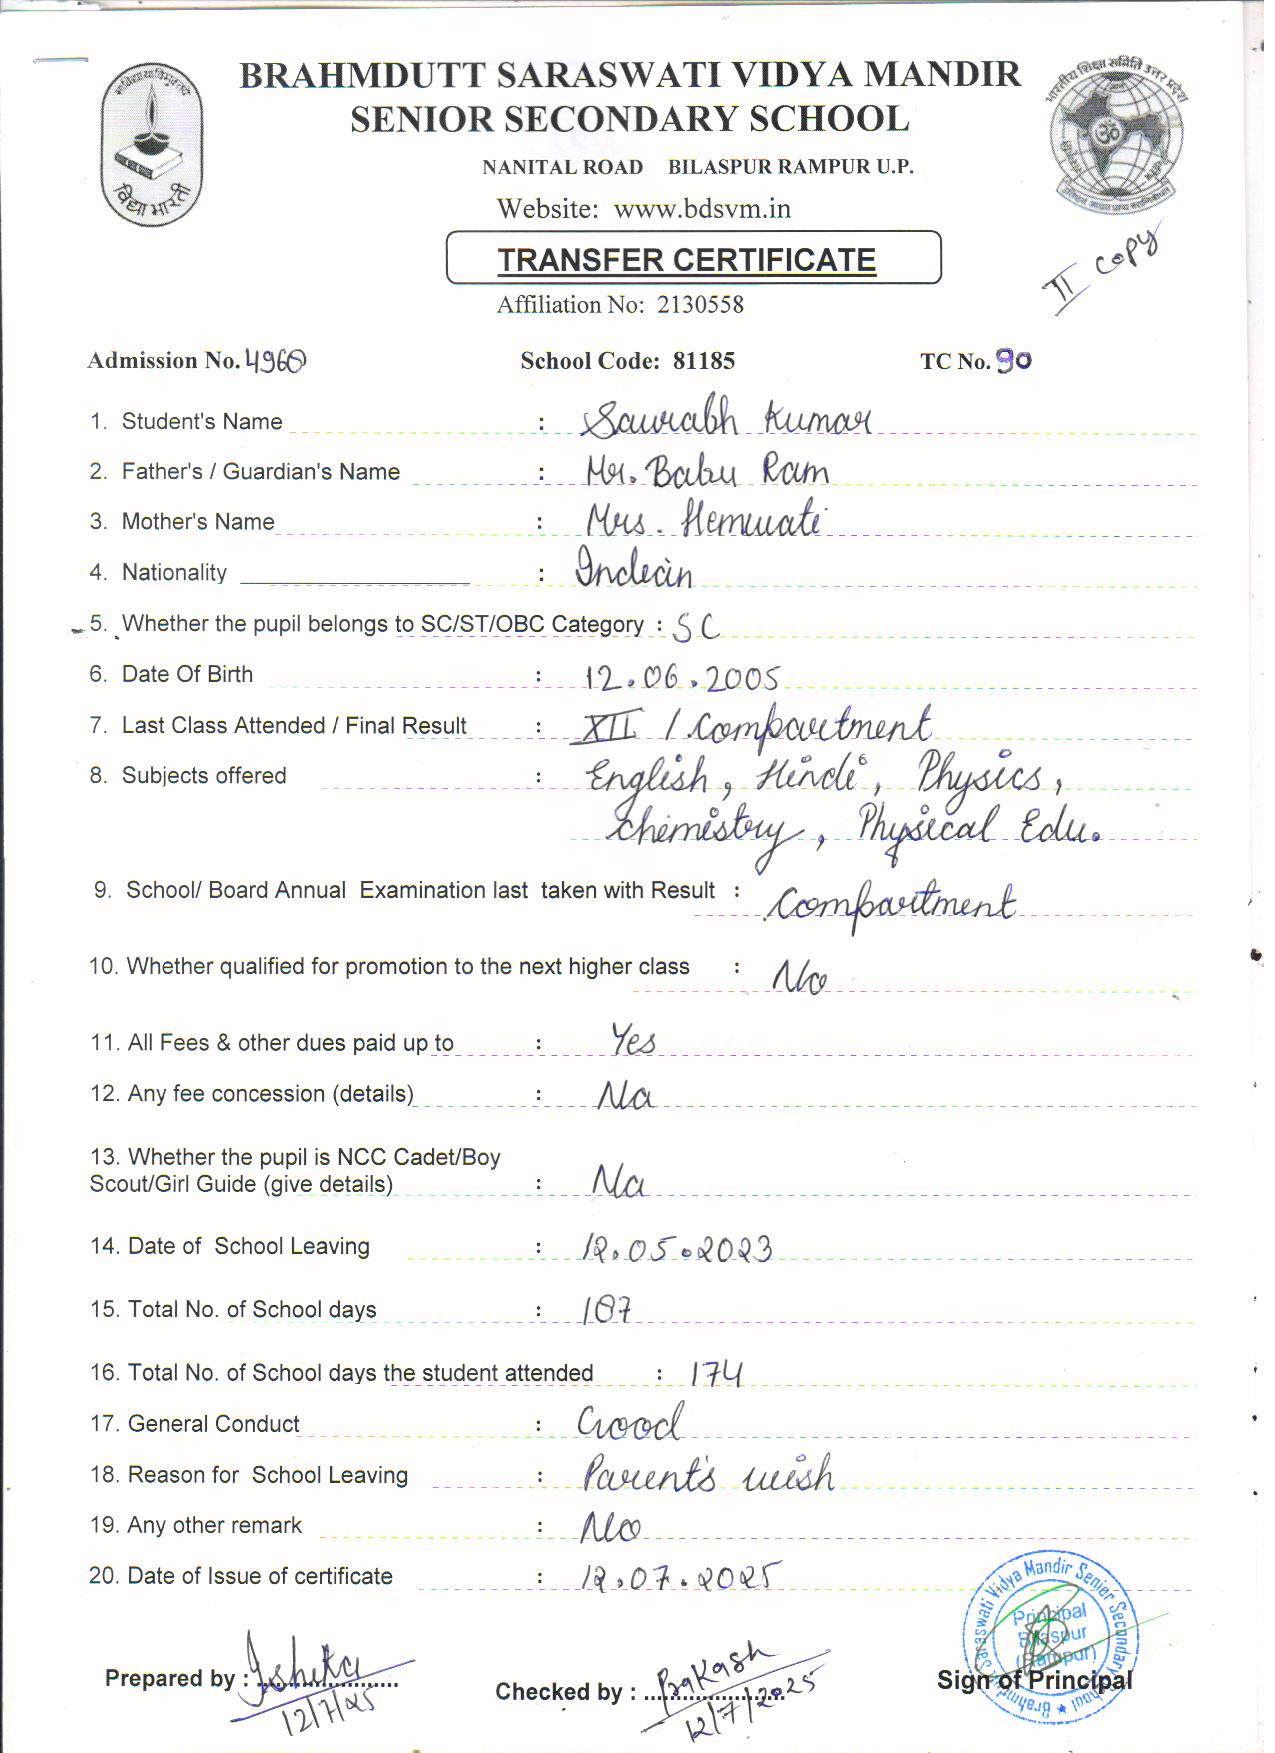 BRAHMDUTT SARASWATI VIDYA MANDIR
SENIOR SECONDARY SCHOOL
NANITAL ROAD BILASPUR RAMPUR U.P.
Website: www.bdsvm.in
विद्या भारती
भारतीय शिक्षा समिति उत्तर प्रदेश
TRANSFER CERTIFICATE
II copy
Affiliation No: 2130558
Admission No. 4960 School Code: 81185 TC No. 90
1. Student's Name : Saurabh Kumar
2. Father's / Guardian's Name : Mr. Babu Ram
3. Mother's Name : Mrs. Hemwati
4. Nationality : Indian
5. Whether the pupil belongs to SC/ST/OBC Category : SC
6. Date Of Birth : 12.06.2005
7. Last Class Attended / Final Result : XII / Compartment
8. Subjects offered : English, Hindi, Physics,
Chemistry, Physical Edu.
9. School/ Board Annual Examination last taken with Result : Compartment
10. Whether qualified for promotion to the next higher class : No
11. All Fees & other dues paid up to : Yes
12. Any fee concession (details) : Na
13. Whether the pupil is NCC Cadet/Boy
Scout/Girl Guide (give details) : Na
14. Date of School Leaving : 12.05.2023
15. Total No. of School days : 187
16. Total No. of School days the student attended : 174
17. General Conduct : Good
18. Reason for School Leaving : Parent's wish
19. Any other remark : No
20. Date of Issue of certificate : 12.07.2025
Saraswati Vidya Mandir Senior Secondary School ★ Brahmdutt
Principal
Bilaspur
(Rampur)
Prepared by : Ishika Checked by : Prakash Sign of Principal
12/7/25 12/7/2025